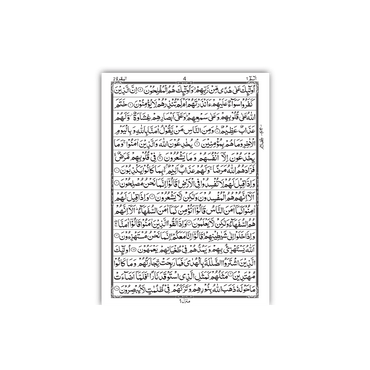 الٓمّٓ ١
4
البقرة ٢
اُولٰٓئِكَ عَلٰى هُدًى مِّنْ رَّبِّهِمْ وَاُولٰٓئِكَ هُمُ الْمُفْلِحُوْنَ ۝ اِنَّ الَّذِيْنَ
كَفَرُوْا سَوَآءٌ عَلَيْهِمْ ءَاَنْذَرْتَهُمْ اَمْ لَمْ تُنْذِرْهُمْ لَا يُؤْمِنُوْنَ ۝ خَتَمَ
اللّٰهُ عَلٰى قُلُوْبِهِمْ وَعَلٰى سَمْعِهِمْ وَعَلٰٓى اَبْصَارِهِمْ غِشَاوَةٌ وَّلَهُمْ
عَذَابٌ عَظِيْمٌ ۝ وَمِنَ النَّاسِ مَنْ يَّقُوْلُ اٰمَنَّا بِاللّٰهِ وَبِالْيَوْمِ
الْاٰخِرِ وَمَا هُمْ بِمُؤْمِنِيْنَ ۝ يُخٰدِعُوْنَ اللّٰهَ وَالَّذِيْنَ اٰمَنُوْا وَمَا
يَخْدَعُوْنَ اِلَّآ اَنْفُسَهُمْ وَمَا يَشْعُرُوْنَ ۝ فِيْ قُلُوْبِهِمْ مَّرَضٌ
فَزَادَهُمُ اللّٰهُ مَرَضًا وَلَهُمْ عَذَابٌ اَلِيْمٌ بِمَا كَانُوْا يَكْذِبُوْنَ ۝
وَاِذَا قِيْلَ لَهُمْ لَا تُفْسِدُوْا فِي الْاَرْضِ قَالُوْٓا اِنَّمَا نَحْنُ مُصْلِحُوْنَ ۝
اَلَآ اِنَّهُمْ هُمُ الْمُفْسِدُوْنَ وَلٰكِنْ لَّا يَشْعُرُوْنَ ۝ وَاِذَا قِيْلَ لَهُمْ
اٰمِنُوْا كَمَآ اٰمَنَ النَّاسُ قَالُوْٓا اَنُؤْمِنُ كَمَآ اٰمَنَ السُّفَهَآءُ اَلَآ
اِنَّهُمْ هُمُ السُّفَهَآءُ وَلٰكِنْ لَّا يَعْلَمُوْنَ ۝ وَاِذَا لَقُوا الَّذِيْنَ اٰمَنُوْا قَالُوْٓا اٰمَنَّا
وَاِذَا خَلَوْا اِلٰى شَيٰطِيْنِهِمْ قَالُوْٓا اِنَّا مَعَكُمْ اِنَّمَا نَحْنُ مُسْتَهْزِءُوْنَ ۝
اَللّٰهُ يَسْتَهْزِئُ بِهِمْ وَيَمُدُّهُمْ فِيْ طُغْيَانِهِمْ يَعْمَهُوْنَ ۝ اُولٰٓئِكَ
الَّذِيْنَ اشْتَرَوُا الضَّلٰلَةَ بِالْهُدٰى فَمَا رَبِحَتْ تِّجَارَتُهُمْ وَمَا كَانُوْا
مُهْتَدِيْنَ ۝ مَثَلُهُمْ كَمَثَلِ الَّذِي اسْتَوْقَدَ نَارًا فَلَمَّآ اَضَآءَتْ
مَا حَوْلَهٗ ذَهَبَ اللّٰهُ بِنُوْرِهِمْ وَتَرَكَهُمْ فِيْ ظُلُمٰتٍ لَّا يُبْصِرُوْنَ ۝
منزل ١